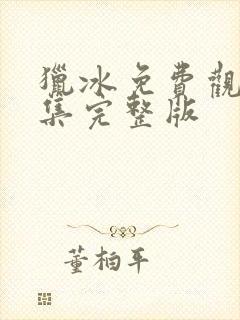 獵冰免費觀
集完整版
董柏平